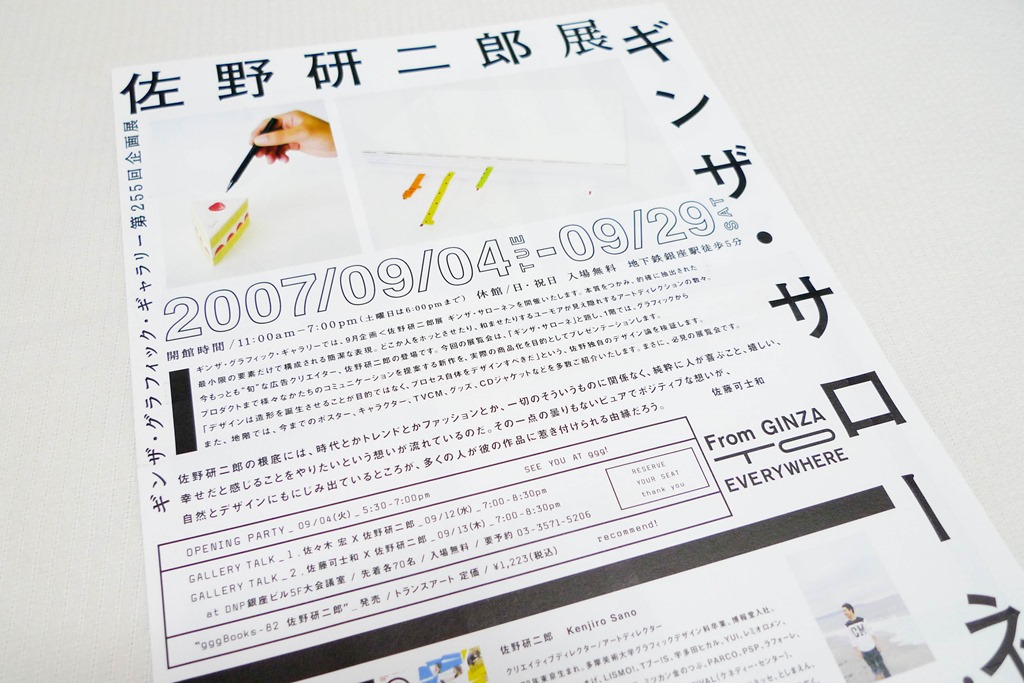 佐野研二郎展
ギンザ・サローネ
ギンザ・グラフィック・ギャラリー第255回企画展
2007/09/04TUE-09/29SAT
開館時間/11:00am–7:00pm(土曜日は6:00pmまで) 休館/日・祝日 入場無料 地下鉄銀座駅徒歩5分
ギンザ・グラフィック・ギャラリーでは、9月企画<佐野研二郎展 ギンザ・サローネ>を開催いたします。本質をつかみ、的確に抽出された
最小限の要素だけで構成される簡潔な表現。どこか人をホッとさせたり、和ませたりするユーモアが見え隠れするアートディレクションの数々。
今もっとも"旬"な広告クリエイター、佐野研二郎の登場です。今回の展覧会は、「ギンザ・サローネ」と題し、1階では、グラフィックから
プロダクトまで様々なかたちのコミュニケーションを提案する新作を、実際の商品化を目的としてプレゼンテーションします。
「デザインは造形を誕生させることが目的ではなく、プロセス自体をデザインすべきだ」という、佐野独自のデザイン論を検証します。
また、地階では、今までのポスター、キャラクター、TVCM、グッズ、CDジャケットなどを多数ご紹介いたします。まさに、必見の展覧会です。
佐野研二郎の根底には、時代とかトレンドとかファッションとか、一切のそういうものに関係なく、純粋に人が喜ぶこと、嬉しい、
幸せだと感じることをやりたいという想いが流れているのだ。その一点の曇りもないピュアでポジティブな想いが、
自然とデザインにもにじみ出ているところが、多くの人が彼の作品に惹き付けられる由縁だろう。
佐藤可士和
From GINZA
TO
EVERYWHERE
SEE YOU AT ggg!
OPENING PARTY_09/04(火)_5:30-7:00pm
RESERVE
YOUR SEAT
thank you
GALLERY TALK_1.佐々木 宏 X 佐野研二郎_09/12(水)_7:00-8:30pm
GALLERY TALK_2.佐藤可士和 X 佐野研二郎_09/13(木)_7:00-8:30pm
at DNP銀座ビル5F大会議室 / 先着各70名 / 入場無料 / 要予約 03-3571-5206
recommend!
"gggBooks-82 佐野研二郎"_発売 / トランスアート 定価 / ¥1,223(税込)
佐野研二郎 Kenjiro Sano
クリエイティブディレクター/アートディレクター